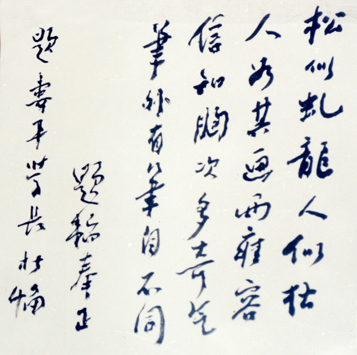 松似虬龍人似松
人如其画两雍容
信知胸次多奇气
筆外有筆自不同
題稿奉正
題婁平学長松幅